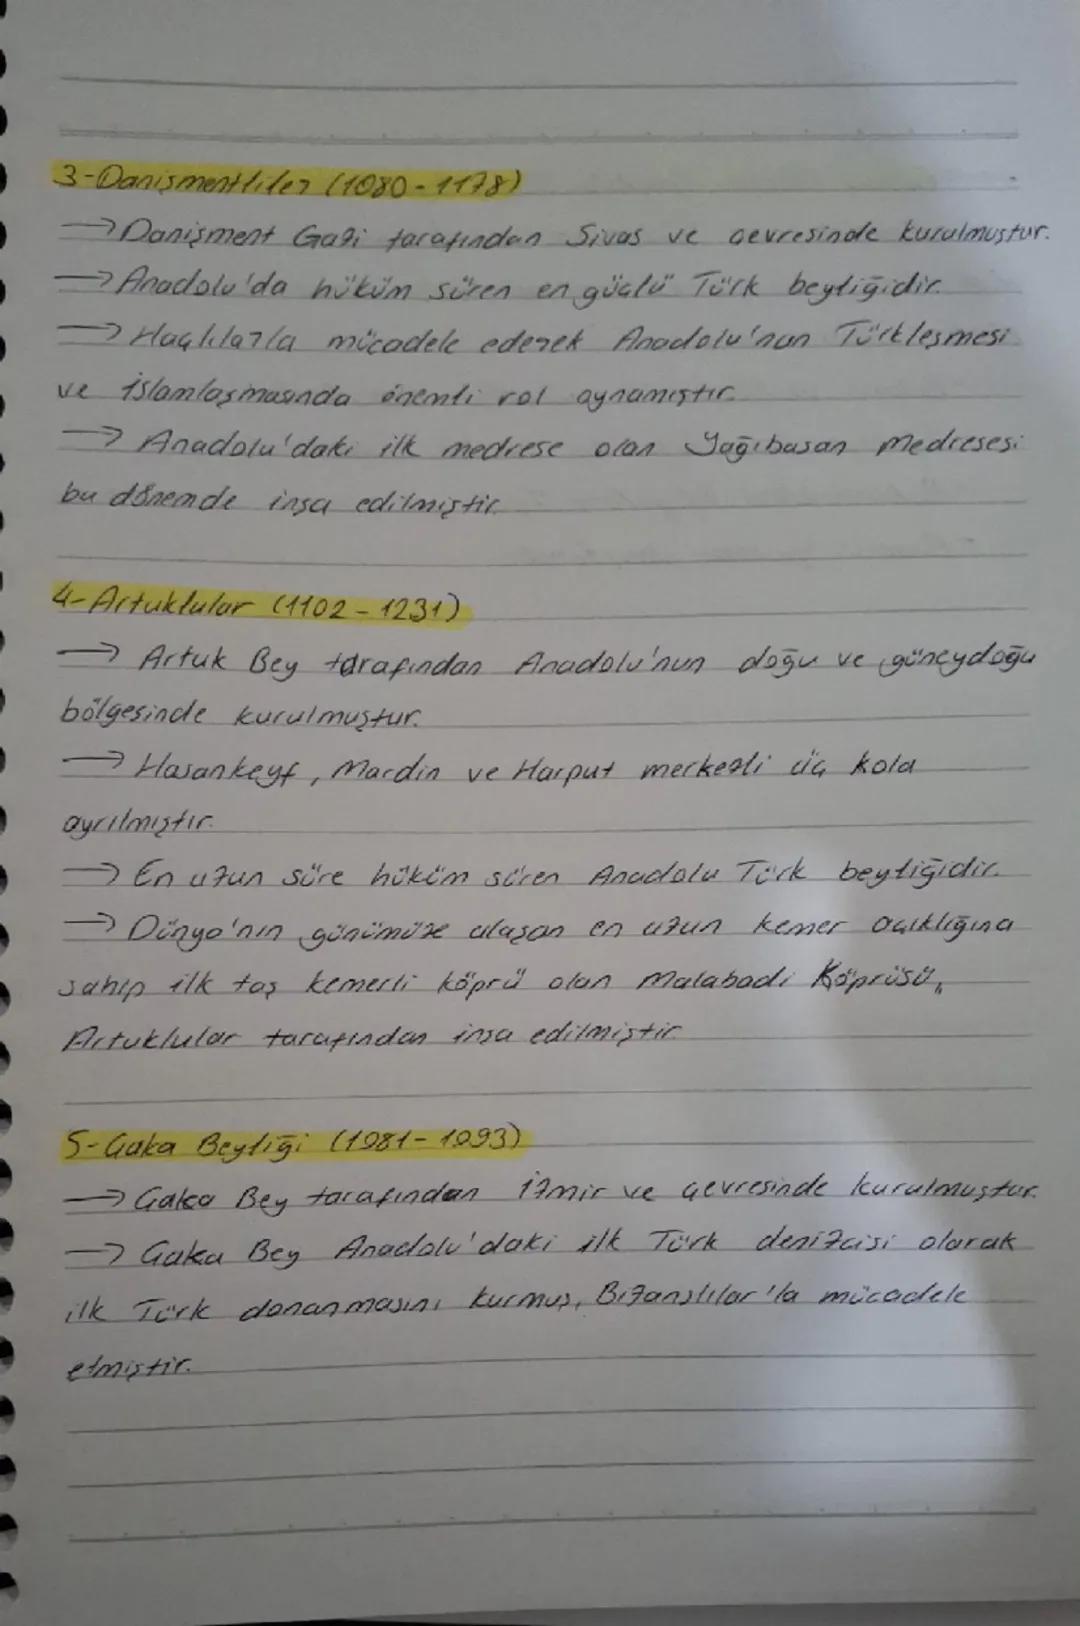 3-Danişmentliler (1080-1178)
→ Danişment Gazi tarafından Sivas ve çevresinde kurulmuştur.
→ Anadolu'da hüküm süren en güçlü Türk beyliğidir.
→ Haçlılarla mücadele ederek Anadolu'nun Türkleşmesi
ve İslamlaşmasında önemli rol oynamıştır.
→ Anadolu'daki ilk medrese olan Yağıbasan Medresesi
bu dönemde inşa edilmiştir.
4-Artuklular (1102-1231)
→ Artuk Bey tarafından Anadolu'nun doğu ve güneydoğu
bölgesinde kurulmuştur.
→ Hasankeyf, Mardin ve Harput merkezli üç kola
ayrılmıştır.
→ En uzun süre hüküm süren Anadolu Türk beyliğidir.
→ Dünya'nın günümüze ulaşan en uzun kemer açıklığına
sahip ilk taş kemerli köprü olan Malabadi Köprüsü,
Artuklular tarafından inşa edilmiştir.
5-Çaka Beyliği (1081-1093)
→ Çaka Bey tarafından İzmir ve çevresinde kurulmuştur.
→ Çaka Bey Anadolu'daki ilk Türk denizcisi olarak
ilk Türk donanmasını kurmuş, Bizanslılar'la mücadele
etmiştir.